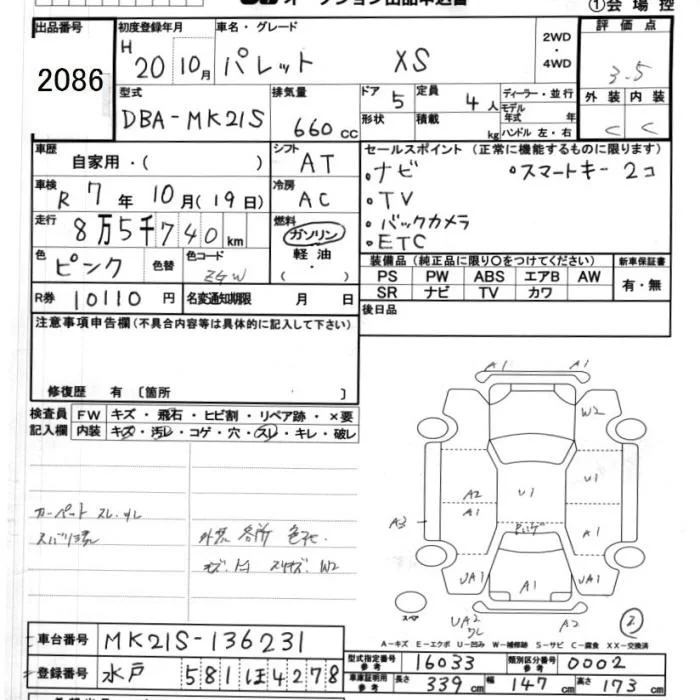 オークション出品申込書
①会場控
出品番号 初度登録年月 車名・グレード 2WD・4WD 評価点
2086 H 20 10月 パレット XS 3.5
型式 排気量 ドア 5 定員 4人 ディーラー・並行 外装 内装
DBA-MK21S 660cc 形状 積載 kg モデル年式 年 ハンドル 左・右 C C
車歴 自家用・( ) シフト AT セールスポイント (正常に機能するものに限ります)
車検 R 7年 10月(19日) 冷房 AC
・ナビ ・スマートキー 2コ
・TV
・バックカメラ
・ETC
走行 8万5千740km 燃料 ガソリン・軽油・( )
色 ピンク 色替 色コード ZGW
装備品 (純正品に限り○をつけてください) 新車保証書
PS PW ABS エアB AW 有・無
SR ナビ TV カワ
R券 10110円 名変通知期限 月 日 後日品
注意事項申告欄(不具合内容等は具体的に記入して下さい)
修復歴 有〔箇所 〕
検査員記入欄 FW キズ・飛石・ヒビ割・リペア跡・×要
内装 キズ・汚レ・コゲ・穴・スレ・キレ・破レ
カーペット スレ
外装 各所 色花
W2
A1 A1
W2
A2 A1 U1 U1
A3 A1
UA1 A1 UA1
スペア UA2 A2
A-キズ E-エクボ U-凹み W-補修跡 S-サビ C-腐食 XX-交換済
車台番号 MK21S-136231
登録番号 水戸 581 ほ 4278
型式指定番号 参考 16033 類別区分番号 参考 0002
車庫証明用 参考 長さ 339cm 幅 147cm 高さ 173cm